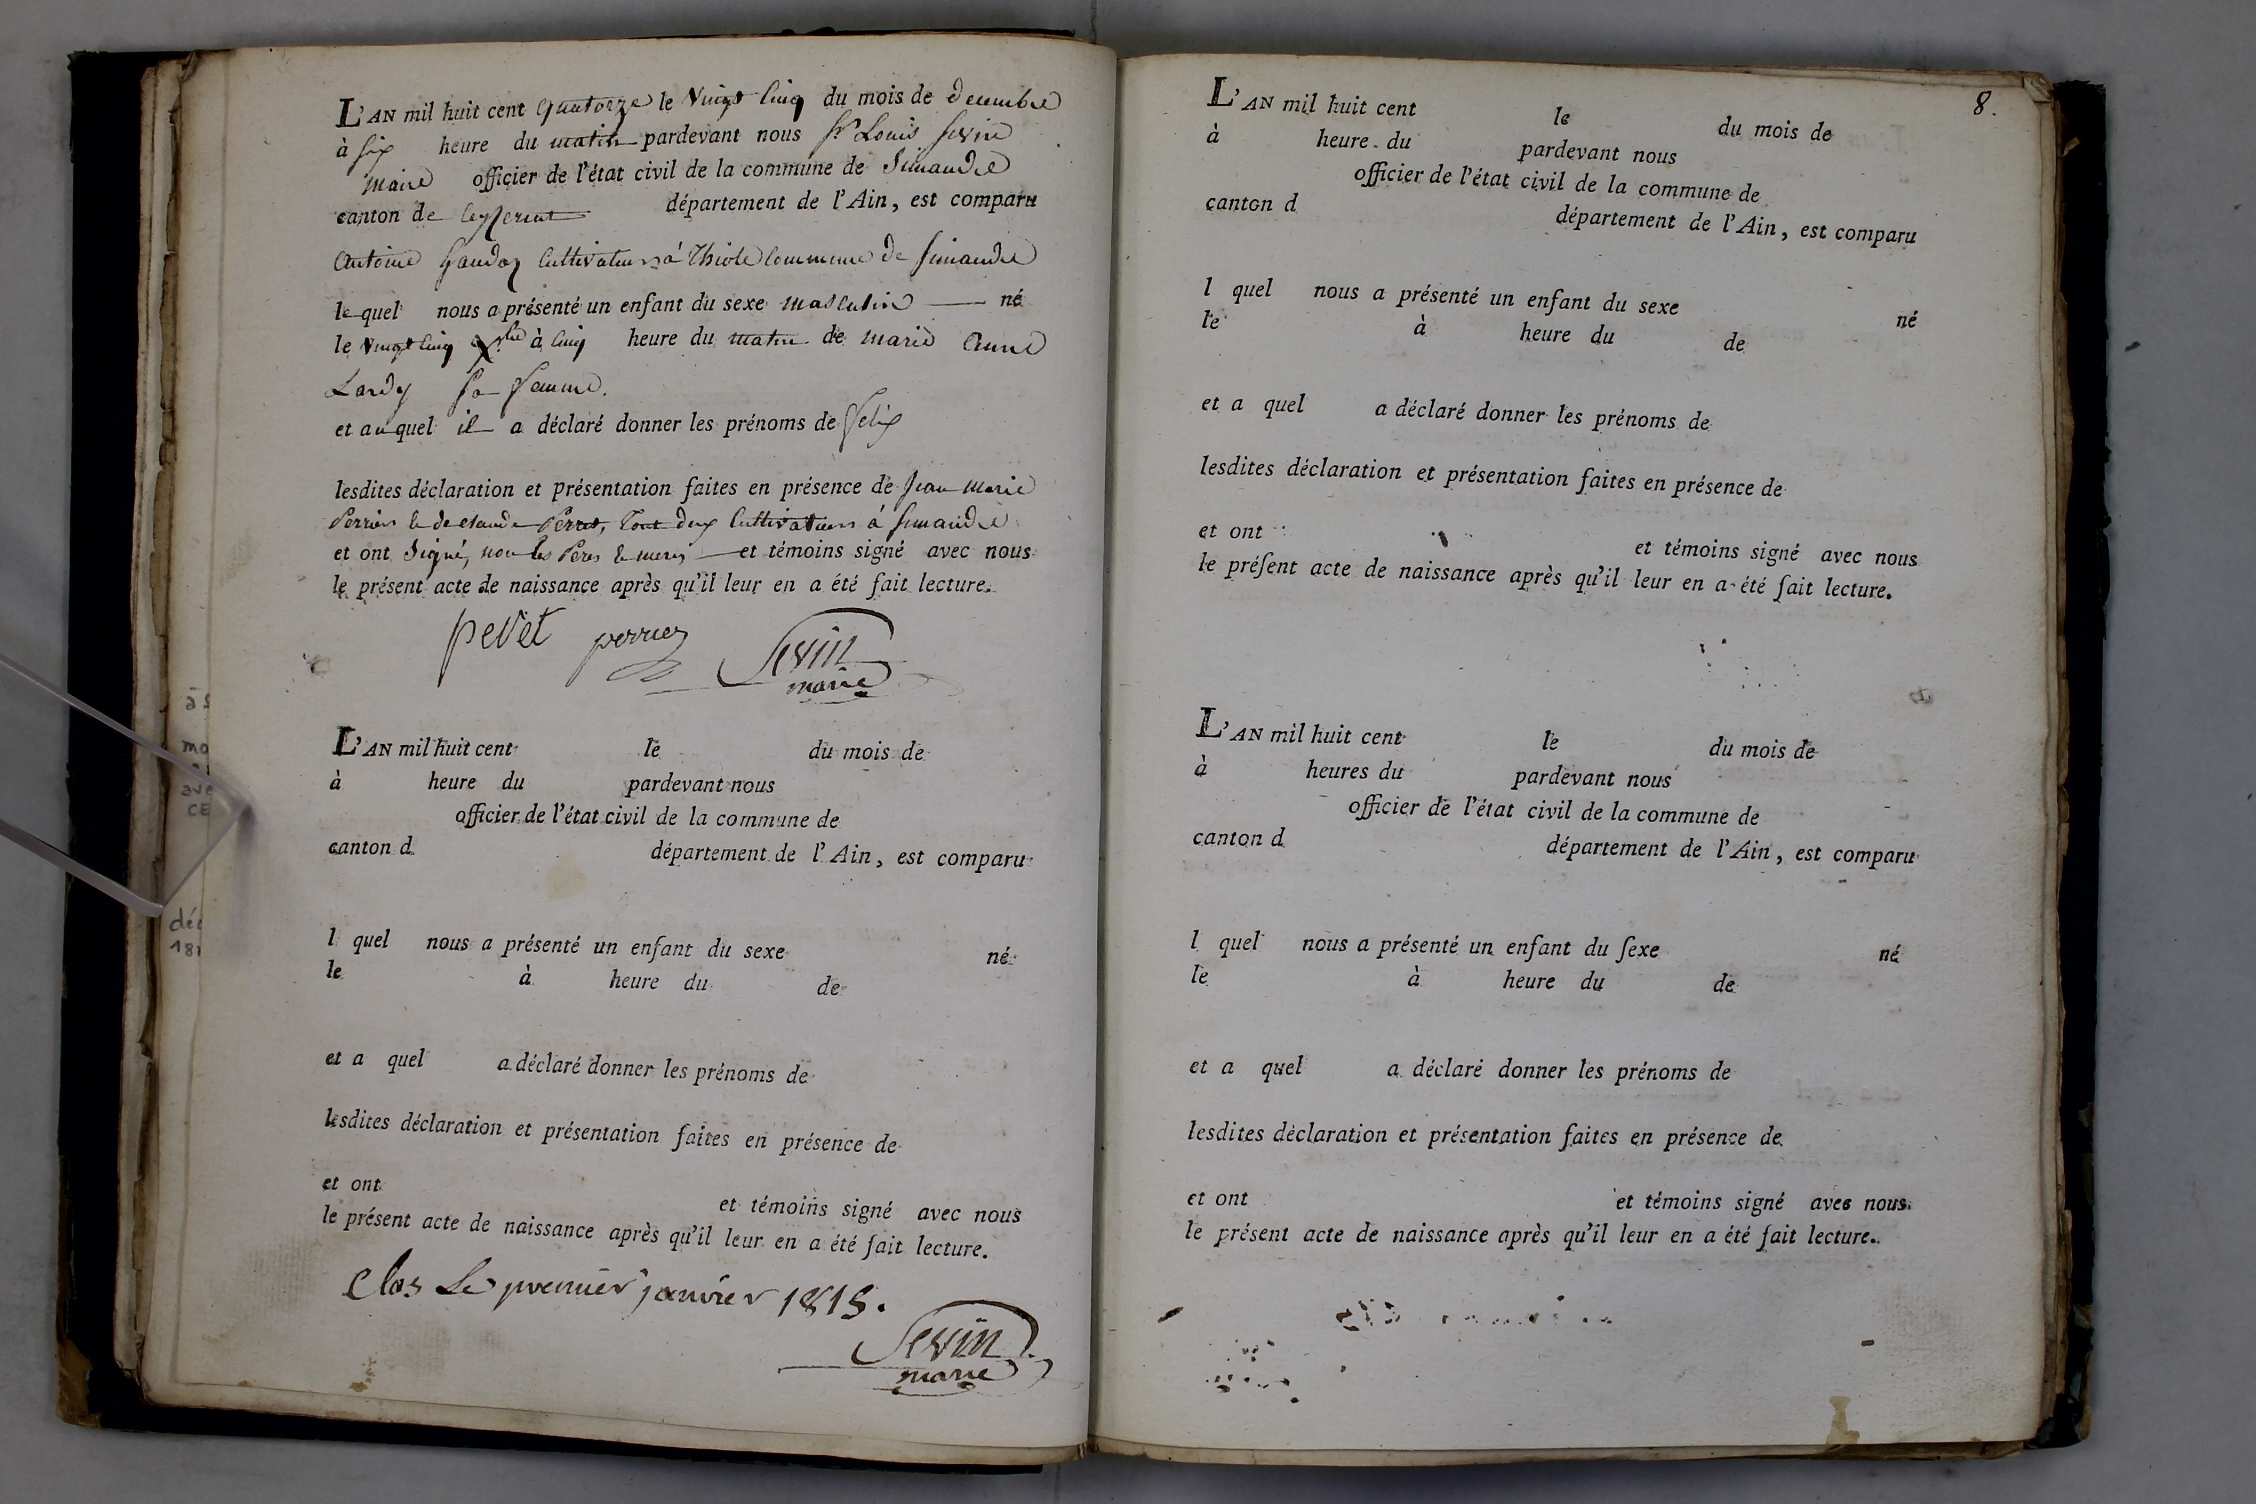 L'AN mil huit cent quatorze le vingt cinq du mois de decembre
à six heure du matin pardevant nous Sr Louis Sevin
maire officier de l'état civil de la commune de Simandre
canton de Ceyzeriat département de l'Ain, est comparu
Antoine Gaudoz Cultivateur à Thiole commune de Simandre
le quel nous a présenté un enfant du sexe masculin né
le vingt cinq Xbre à cinq heure du matin de marie anne
Lardy sa femme.
et au quel il a déclaré donner les prénoms de Felix
lesdites déclaration et présentation faites en présence de Jean Marie
Perrier & de Claude Perret, Tout deux Cultivateurs à Simandre
et ont Signé, non les Peres & meres et témoins signé avec nous
le présent acte de naissance après qu'il leur en a été fait lecture.
pevet perrier Sevin
maire
L'AN mil huit cent le du mois de
à heure du pardevant nous
officier de l'état civil de la commune de
canton d département de l'Ain, est comparu
l quel nous a présenté un enfant du sexe né
le à heure du de
et a quel a déclaré donner les prénoms de
lesdites déclaration et présentation faites en présence de
et ont et témoins signé avec nous
le présent acte de naissance après qu'il leur en a été fait lecture.
Clos Le premier janvier 1815.
Sevin
maire
8.
L'AN mil huit cent le du mois de
à heure du pardevant nous
officier de l'état civil de la commune de
canton d département de l'Ain, est comparu
l quel nous a présenté un enfant du sexe né
le à heure du de
et a quel a déclaré donner les prénoms de
lesdites déclaration et présentation faites en présence de
et ont et témoins signé avec nous
le préſent acte de naissance après qu'il leur en a été fait lecture.
L'AN mil huit cent le du mois de
à heures du pardevant nous
officier de l'état civil de la commune de
canton d département de l'Ain, est comparu
l quel nous a présenté un enfant du ſexe né
le à heure du de
et a quel a déclaré donner les prénoms de
lesdites déclaration et présentation faites en présence de
et ont et témoins signé avec nous
le présent acte de naissance après qu'il leur en a été fait lecture.